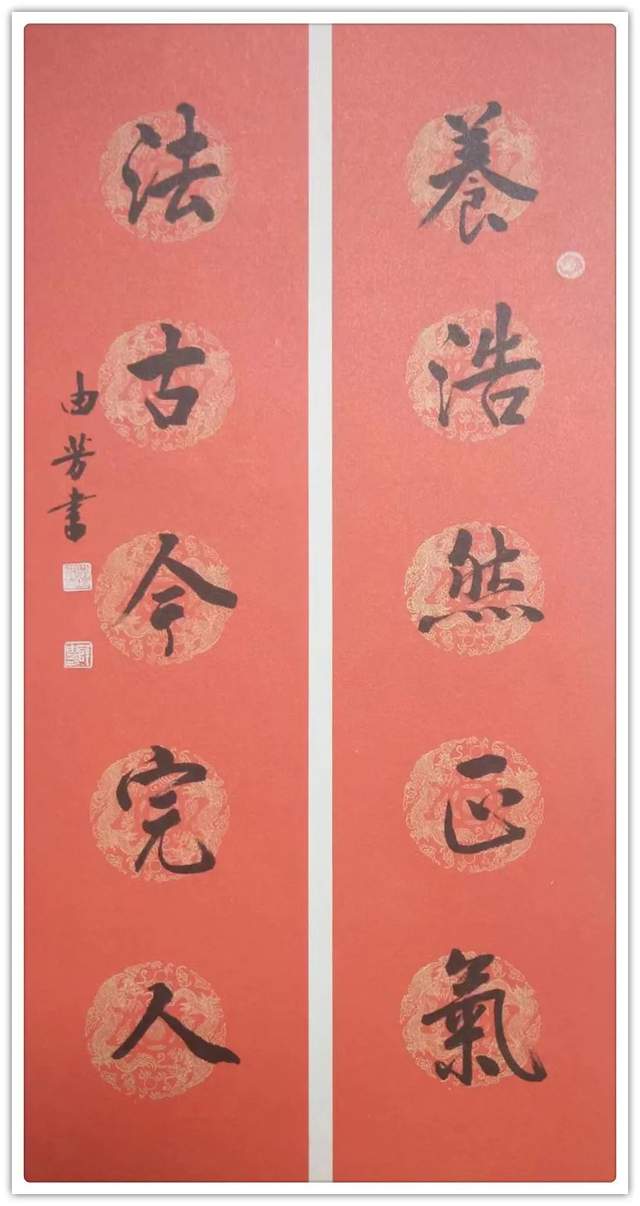 養浩然正氣
法古今完人
由芳書